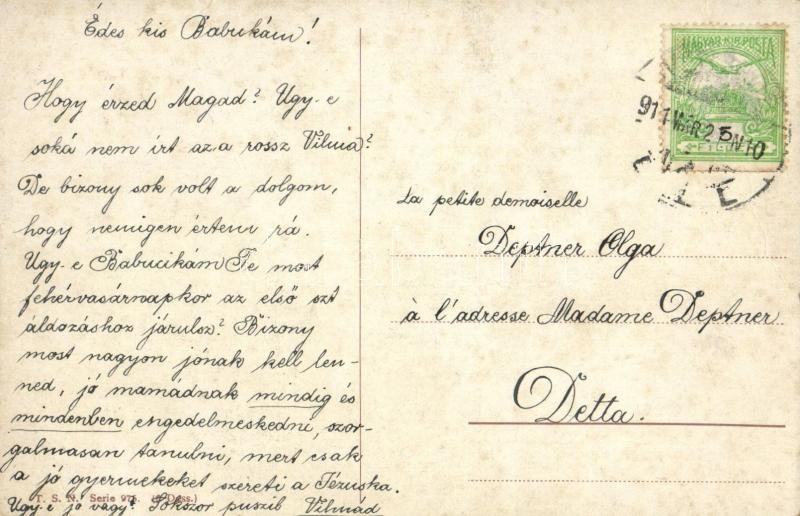 Édes kis Babukám!
Hogy érzed Magad? Ugy-e
soká nem írt az a rossz Vilma?
De bizony sok volt a dolgom,
hogy nemigen értem rá.
Ugy-e Babucikám Te most
fehérvasárnapkor az első szt
áldozáshoz járulsz? Bizony
most nagyon jónak kell len-
ned, jó mamádnak mindig és
mindenben engedelmeskedni, szor-
galmasan tanulni, mert csak
a jó gyermekeket szereti a Jézuska.
Ugy-e jó vagy? Sokszor puszil Vilmád
T. S. N. Serie 975. (6 Dess.)
MAGYAR KIR. POSTA
911 MÁR 25 N 10
La petite demoiselle
Deptner Olga
à l'adresse Madame Deptner
Detta.